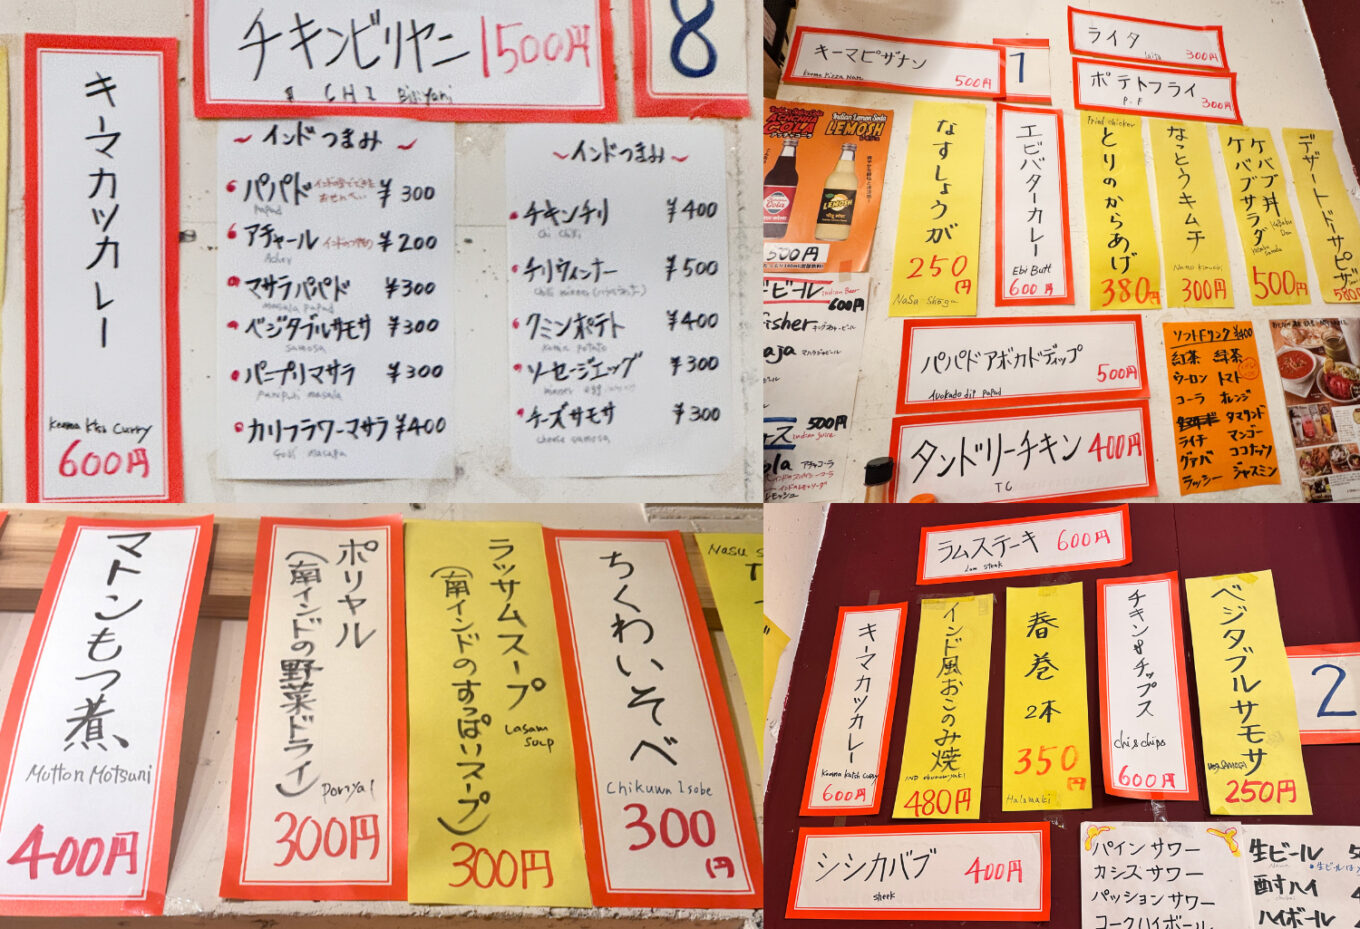 キーマカツカレー
Keema Ktsu Curry
600円
チキンビリヤニ 1500円
CHI Biriyani
8
～インドつまみ～
パパド インドの豆でできた おせんべい ¥300
papad
アチャール インドのつけもの ¥200
Achar
マサラパパド ¥300
masala papad
ベジタブルサモサ ¥300
samosa
パニプリマサラ ¥300
panipuri masala
カリフラワーマサラ ¥400
Gobi masara
～インドつまみ～
チキンチリ ¥400
chi chili
チリウィンナー ¥500
クミンポテト ¥400
kumin potato
ソーセージエッグ ¥300
チーズサモサ ¥300
cheese samosa
キーマピザナン
Keema Pizza Nan
500円
1
ライタ
300円
ポテトフライ
P.F
300円
COLA
Indian Lemon Soda
LEMOSH
500円
ビール Indian Beer
600円
fisher キングフィッシャービール
aja マハラジャビール
ース 500円
Indian juice
ola アチャコーラ
なすしょうが
250円
Nasu Shoga
エビバターカレー
Ebi Butt
600円
Fried chicken
とりのからあげ
380円
なっとうキムチ
Natto kimuchi
300円
ケバブ丼
ケバブサラダ
500円
デザートドーサピザ
580円
パパドアボカドディップ
500円
Avokado dip papad
タンドリーチキン 400円
TC
ソフトドリンク ¥400
紅茶 緑茶
ウーロン トマト
コーラ オレンジ
タマリンド
ライチ マンゴー
グァバ ココナッツ
ラッシー ジャスミン
マトンもつ煮
Mutton Motsuni
400円
ポリヤル
(南インドの野菜ドライ)
Poriyal
300円
ラッサムスープ
(南インドのすっぱいスープ)
Lasam Soup
300円
ちくわいそべ
Chikuwa Isobe
300円
Nasu
ラムステーキ 600円
Lam steak
キーマカツカレー
Keema Katsu Curry
600円
インド風おこのみ焼
IND okonomiyaki
480円
春巻
2本
350円
Halumaki
チキン&チップス
chi & chips
600円
ベジタブルサモサ
Veg Samosa
250円
2
シシカバブ 400円
sheek
パインサワー
カシスサワー
パッションサワー
コークハイボール
生ビール
酎ハイ
ハイボール